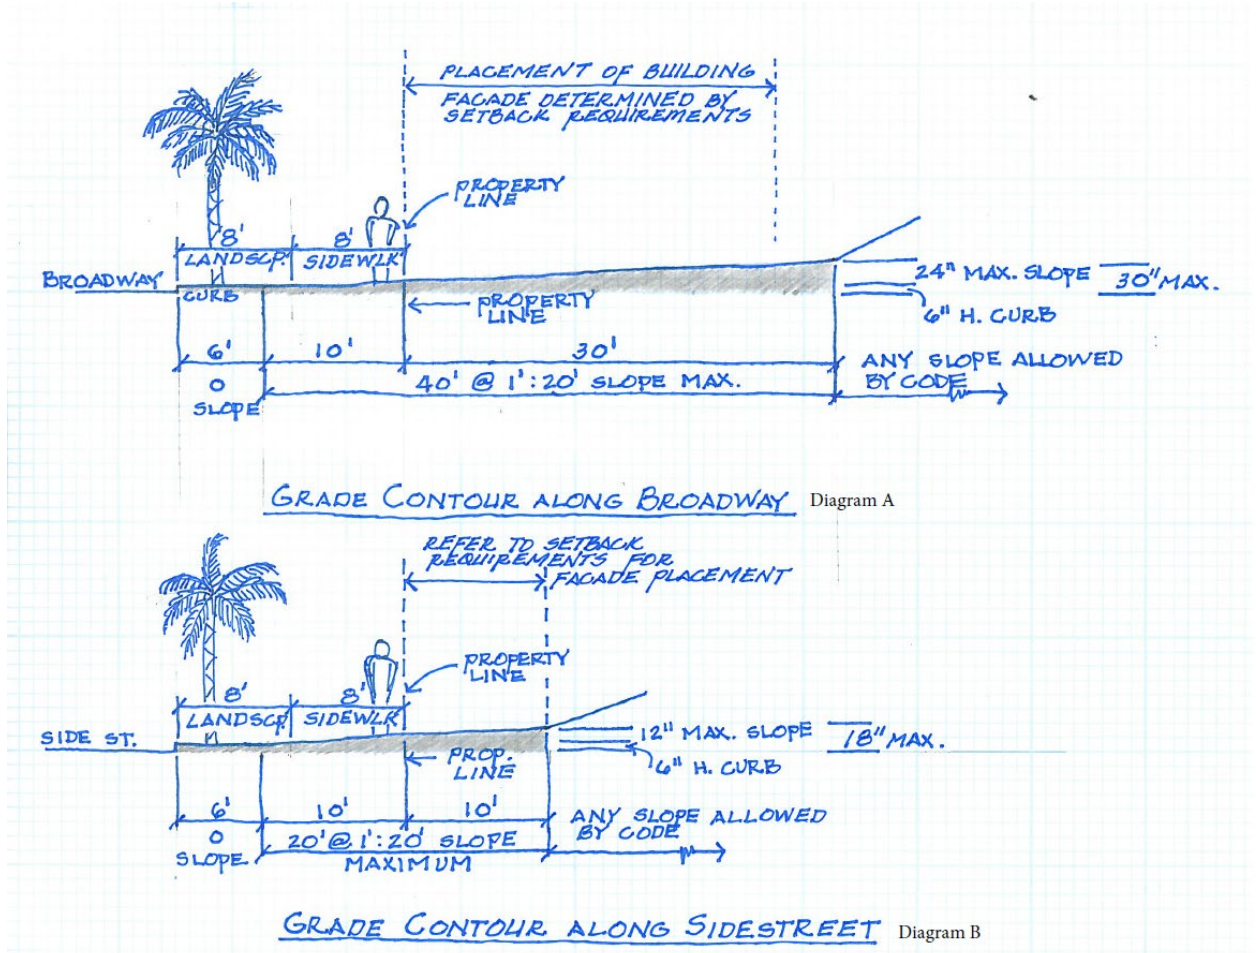 PLACEMENT OF BUILDING
FACADE DETERMINED BY
SETBACK REQUIREMENTS
PROPERTY
LINE
8'
8'
LANDSCP.
SIDEWLK
BROADWAY
CURB
PROPERTY
LINE
24" MAX. SLOPE
30" MAX.
6" H. CURB
6'
10'
30'
ANY SLOPE ALLOWED
BY CODE
0
SLOPE
40' @ 1':20' SLOPE MAX.
GRADE CONTOUR ALONG BROADWAY
Diagram A
REFER TO SETBACK
REQUIREMENTS FOR
FACADE PLACEMENT
PROPERTY
LINE
8'
8'
LANDSCP.
SIDEWLK
SIDE ST.
PROP.
LINE
12" MAX. SLOPE
18" MAX.
6" H. CURB
6'
10'
10'
ANY SLOPE ALLOWED
BY CODE
0
SLOPE
20' @ 1':20' SLOPE
MAXIMUM
GRADE CONTOUR ALONG SIDESTREET
Diagram B